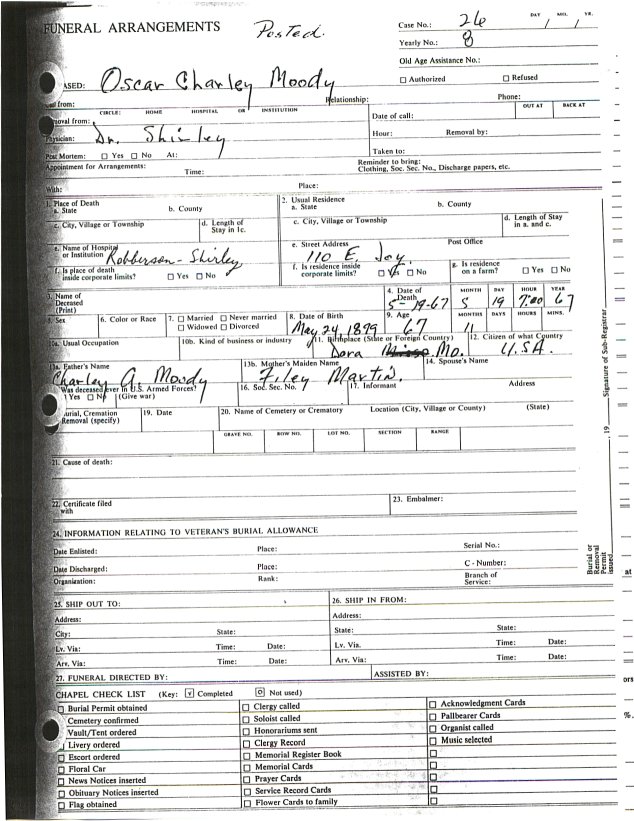 FUNERAL ARRANGEMENTS
Posted.
Case No.: 26
DAY MO. YR.
/ /
Yearly No.: 8
Old Age Assistance No.:
☐ Authorized ☐ Refused
ASED: Oscar Charley Moody
Relationship:
Phone:
from:
CIRCLE: HOME HOSPITAL OR INSTITUTION
OUT AT BACK AT
oval from:
Date of call:
Physician: Dr. Shirley
Hour: Removal by:
Post Mortem: ☐ Yes ☐ No At:
Taken to:
Appointment for Arrangements:
Time:
Reminder to bring:
Clothing, Soc. Sec. No., Discharge papers, etc.
With:
Place:
1. Place of Death
a. State b. County
2. Usual Residence
a. State b. County
c. City, Village or Township
d. Length of
Stay in 1c.
c. City, Village or Township
d. Length of Stay
in a. and c.
e. Name of Hospital
or Institution Robberson-Shirley
e. Street Address Post Office
110 E. Joy.
f. Is place of death
inside corporate limits? ☐ Yes ☐ No
f. Is residence inside
corporate limits? ☐ Yes ☐ No
g. Is residence
on a farm? ☐ Yes ☐ No
3. Name of
Deceased
(Print)
4. Date of
Death
5-19-67
MONTH DAY HOUR YEAR
5 19 7:00 67
5. Sex
6. Color or Race
7. ☐ Married ☐ Never married
☐ Widowed ☐ Divorced
8. Date of Birth
May 24, 1899
9. Age
67
MONTHS DAYS HOURS MINS.
11
10a. Usual Occupation
10b. Kind of business or industry
11. Birthplace (State or Foreign Country)
Dora Mo.
12. Citizen of what Country
U.S.A.
13a. Father's Name
Charley A. Moody
13b. Mother's Maiden Name
Filey Martin.
14. Spouse's Name
Was deceased ever in U.S. Armed Forces?
☐ Yes ☐ No (Give war)
16. Soc. Sec. No.
17. Informant Address
Burial, Cremation
Removal (specify)
19. Date
20. Name of Cemetery or Crematory Location (City, Village or County) (State)
GRAVE NO. ROW NO. LOT NO. SECTION RANGE
21. Cause of death:
22. Certificate filed
with
23. Embalmer:
24. INFORMATION RELATING TO VETERAN'S BURIAL ALLOWANCE
Date Enlisted: Place: Serial No.:
Date Discharged: Place: C - Number:
Organization: Rank: Branch of
Service:
25. SHIP OUT TO:
Address:
City: State:
Lv. Via: Time: Date:
Arv. Via: Time: Date:
26. SHIP IN FROM:
Address:
State: State:
Lv. Via. Time: Date:
Arv. Via: Time: Date:
27. FUNERAL DIRECTED BY:
ASSISTED BY:
CHAPEL CHECK LIST (Key: ☑ Completed ☐ Not used)
☐ Burial Permit obtained
Cemetery confirmed
Vault/Tent ordered
Livery ordered
☐ Escort ordered
☐ Floral Car
☐ News Notices inserted
☐ Obituary Notices inserted
☐ Flag obtained
☐ Clergy called
☐ Soloist called
☐ Honorariums sent
☐ Clergy Record
☐ Memorial Register Book
☐ Memorial Cards
☐ Prayer Cards
☐ Service Record Cards
☐ Flower Cards to family
☐ Acknowledgment Cards
☐ Pallbearer Cards
☐ Organist called
☐ Music selected
Burial or
Removal
Permit
issued
19
Signature of Sub-Registrar
at
ors
%.